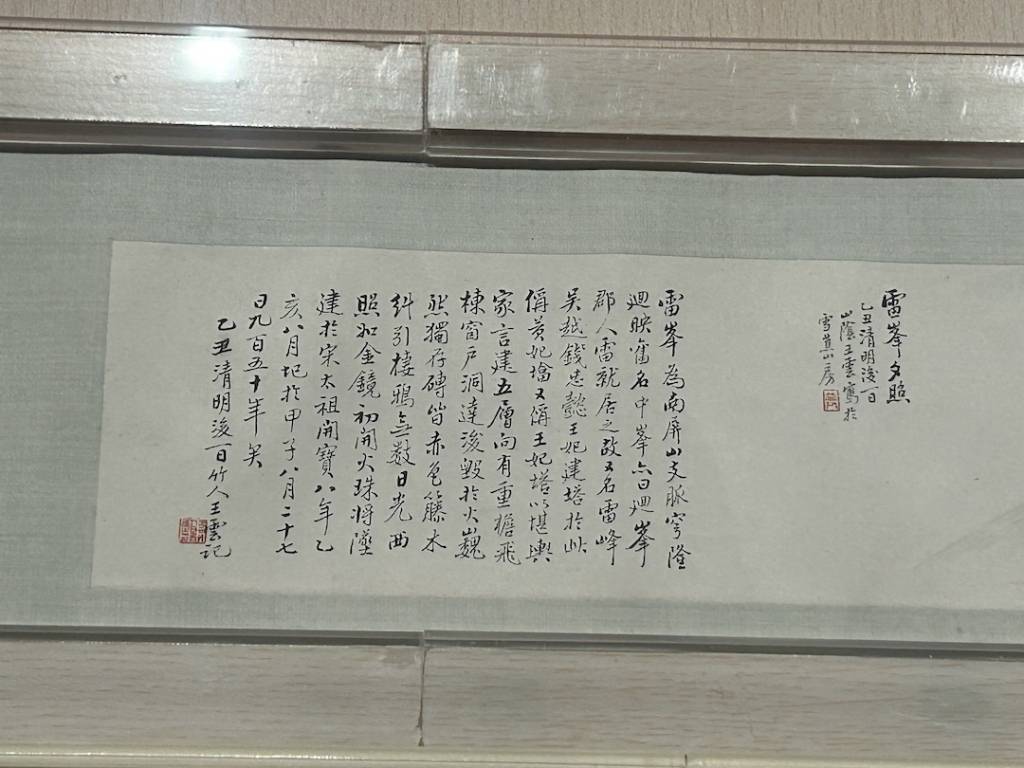 雷峯夕照
乙丑清明後一日
山陰王雲寫於
雪蕉山房
雷峯為南屏山支脈穹隆
迴映舊名中峯亦曰迴峯
郡人雷就居之故又名雷峰
吳越錢忠懿王妃建塔於此
偁黃妃墖又偁王妃塔以堪輿
家言建五層向有重檐飛
棟窗戶洞達後毀於火巍
然獨存磚皆赤色籐木
糾引棲鴉無數日光西
照如金鏡初開火珠將墜
建於宋太祖開寶八年乙
亥八月圮於甲子八月二十七
日九百五十年矣
乙丑清明後一日竹人王雲記